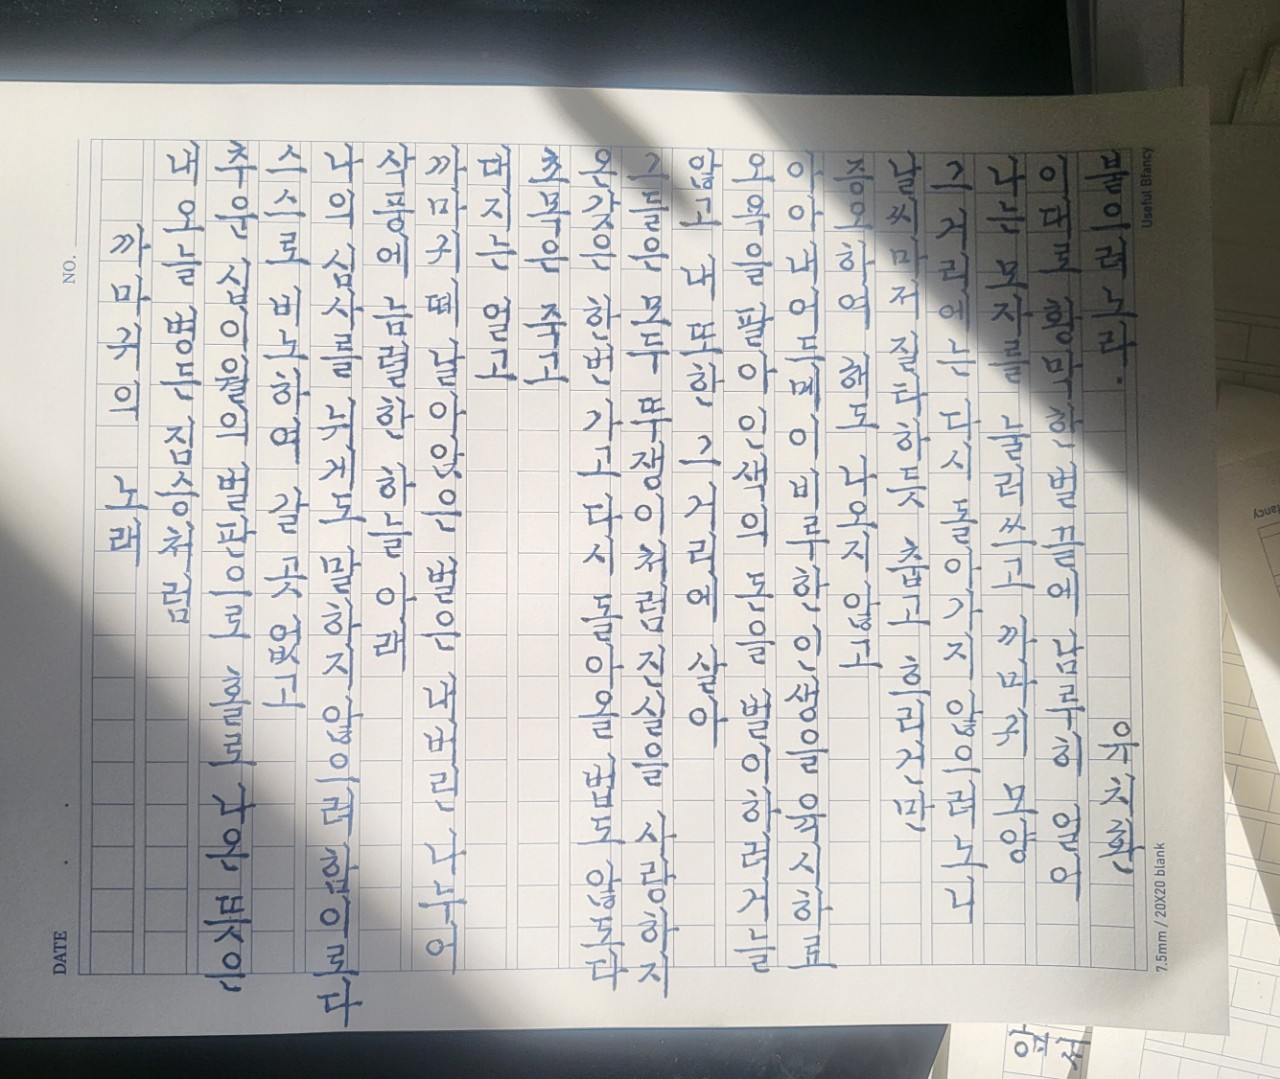 까마귀의 노래
내 오늘 병든 짐승처럼
추운 십이월의 벌판으로 홀로 나온 뜻은
스스로 비노하여 갈 곳 없고
나의 심사를 뉘게도 말하지 않으려 함으로다
삭풍에 늠렬한 하늘 아래
까마귀 떼 날아 앉은 벌은 내버린 나누어
대지는 얼고
초목은 죽고
온갖은 한번 가고 다시 돌아올 법도 않도다
그들은 모두 뚜쟁이처럼 진실을 사랑하지
않고 내 또한 그 거리에 살아
오욕을 팔아 인색의 돈을 벌이하려거늘
아아 내 어드메 이 비루한 인생을 육시하료
증오하여 해도 나오지 않고
날씨마저 질타하듯 춥고 흐리건만
그 거리에는 다시 돌아가지 않으려노니
나는 모자를 눌러쓰고 까마귀 모양
이대로 황막한 벌 끝에 남루히 얼어
붙으려노라.
유치환
NO.
DATE
Useful Blancy
7.5mm / 20X20 blank
앞
표
서